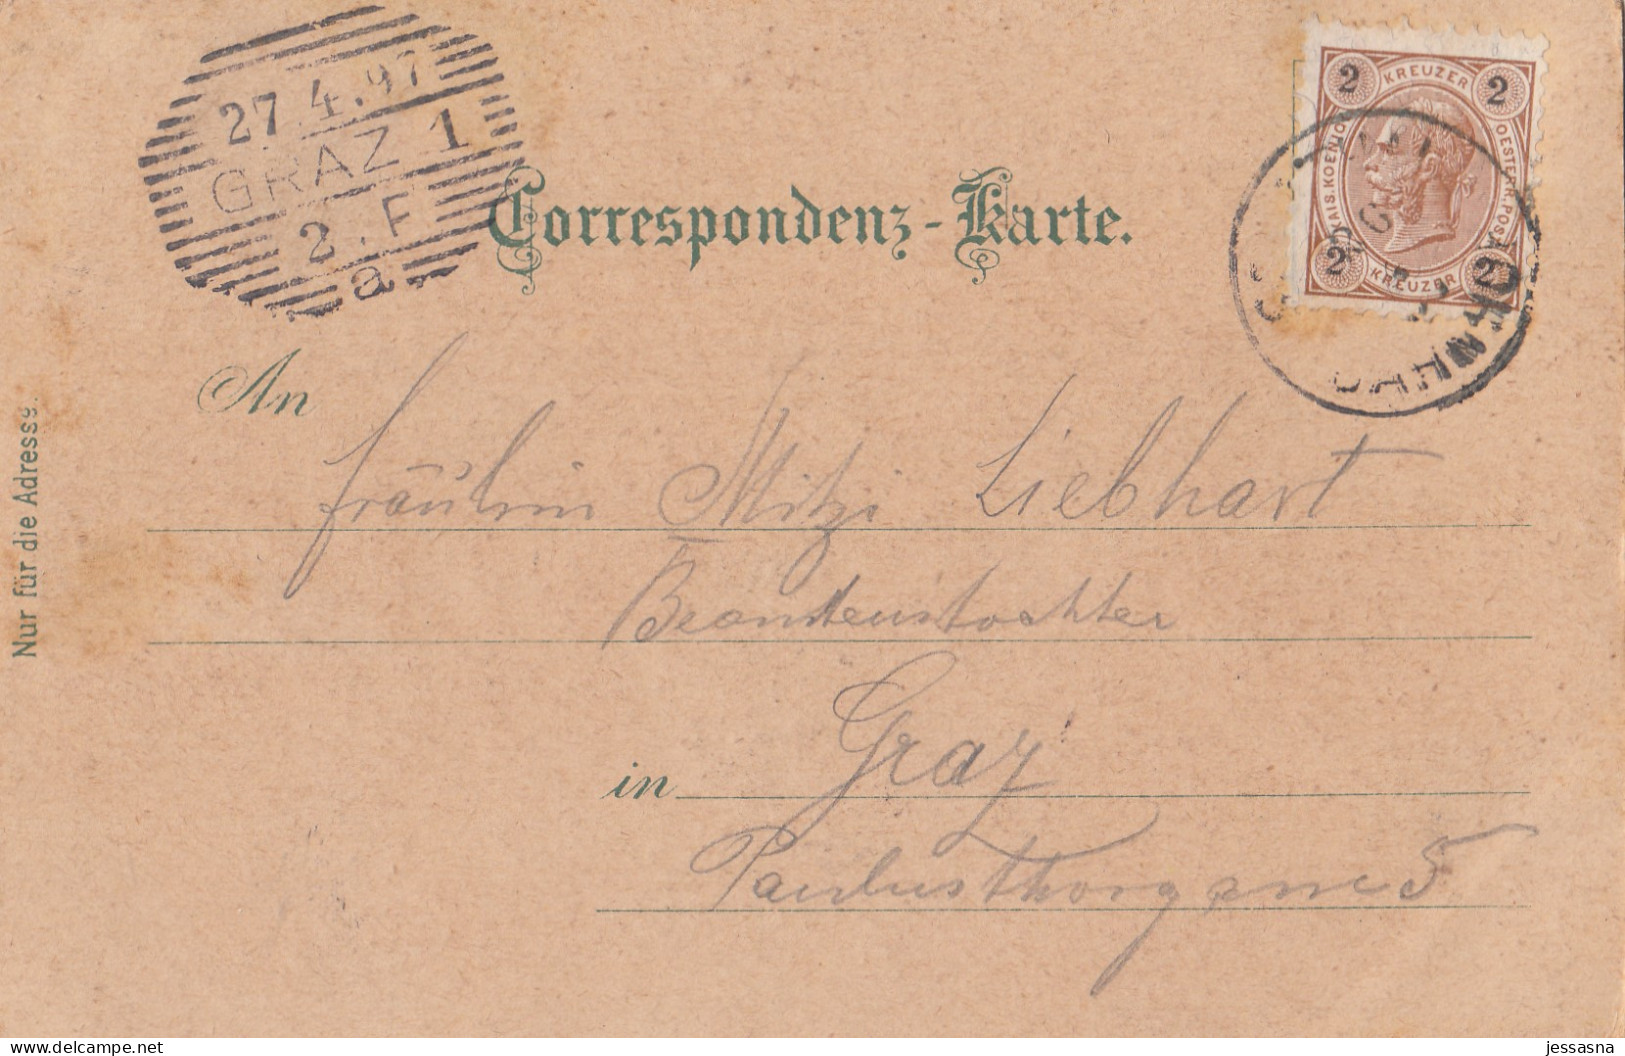 27.4.97
GRAZ 1
2.F
a
Correspondenz-Karte.
2 KREUZER 2
KAIS. KOENIGL. OESTERR. POST
2 KREUZER 2
An
Fräulein Mitzi Liebhart
Beamtenstochter
in Graz
Paulusthorgasse 5
Nur für die Adresse.
delcampe.net
jessasna